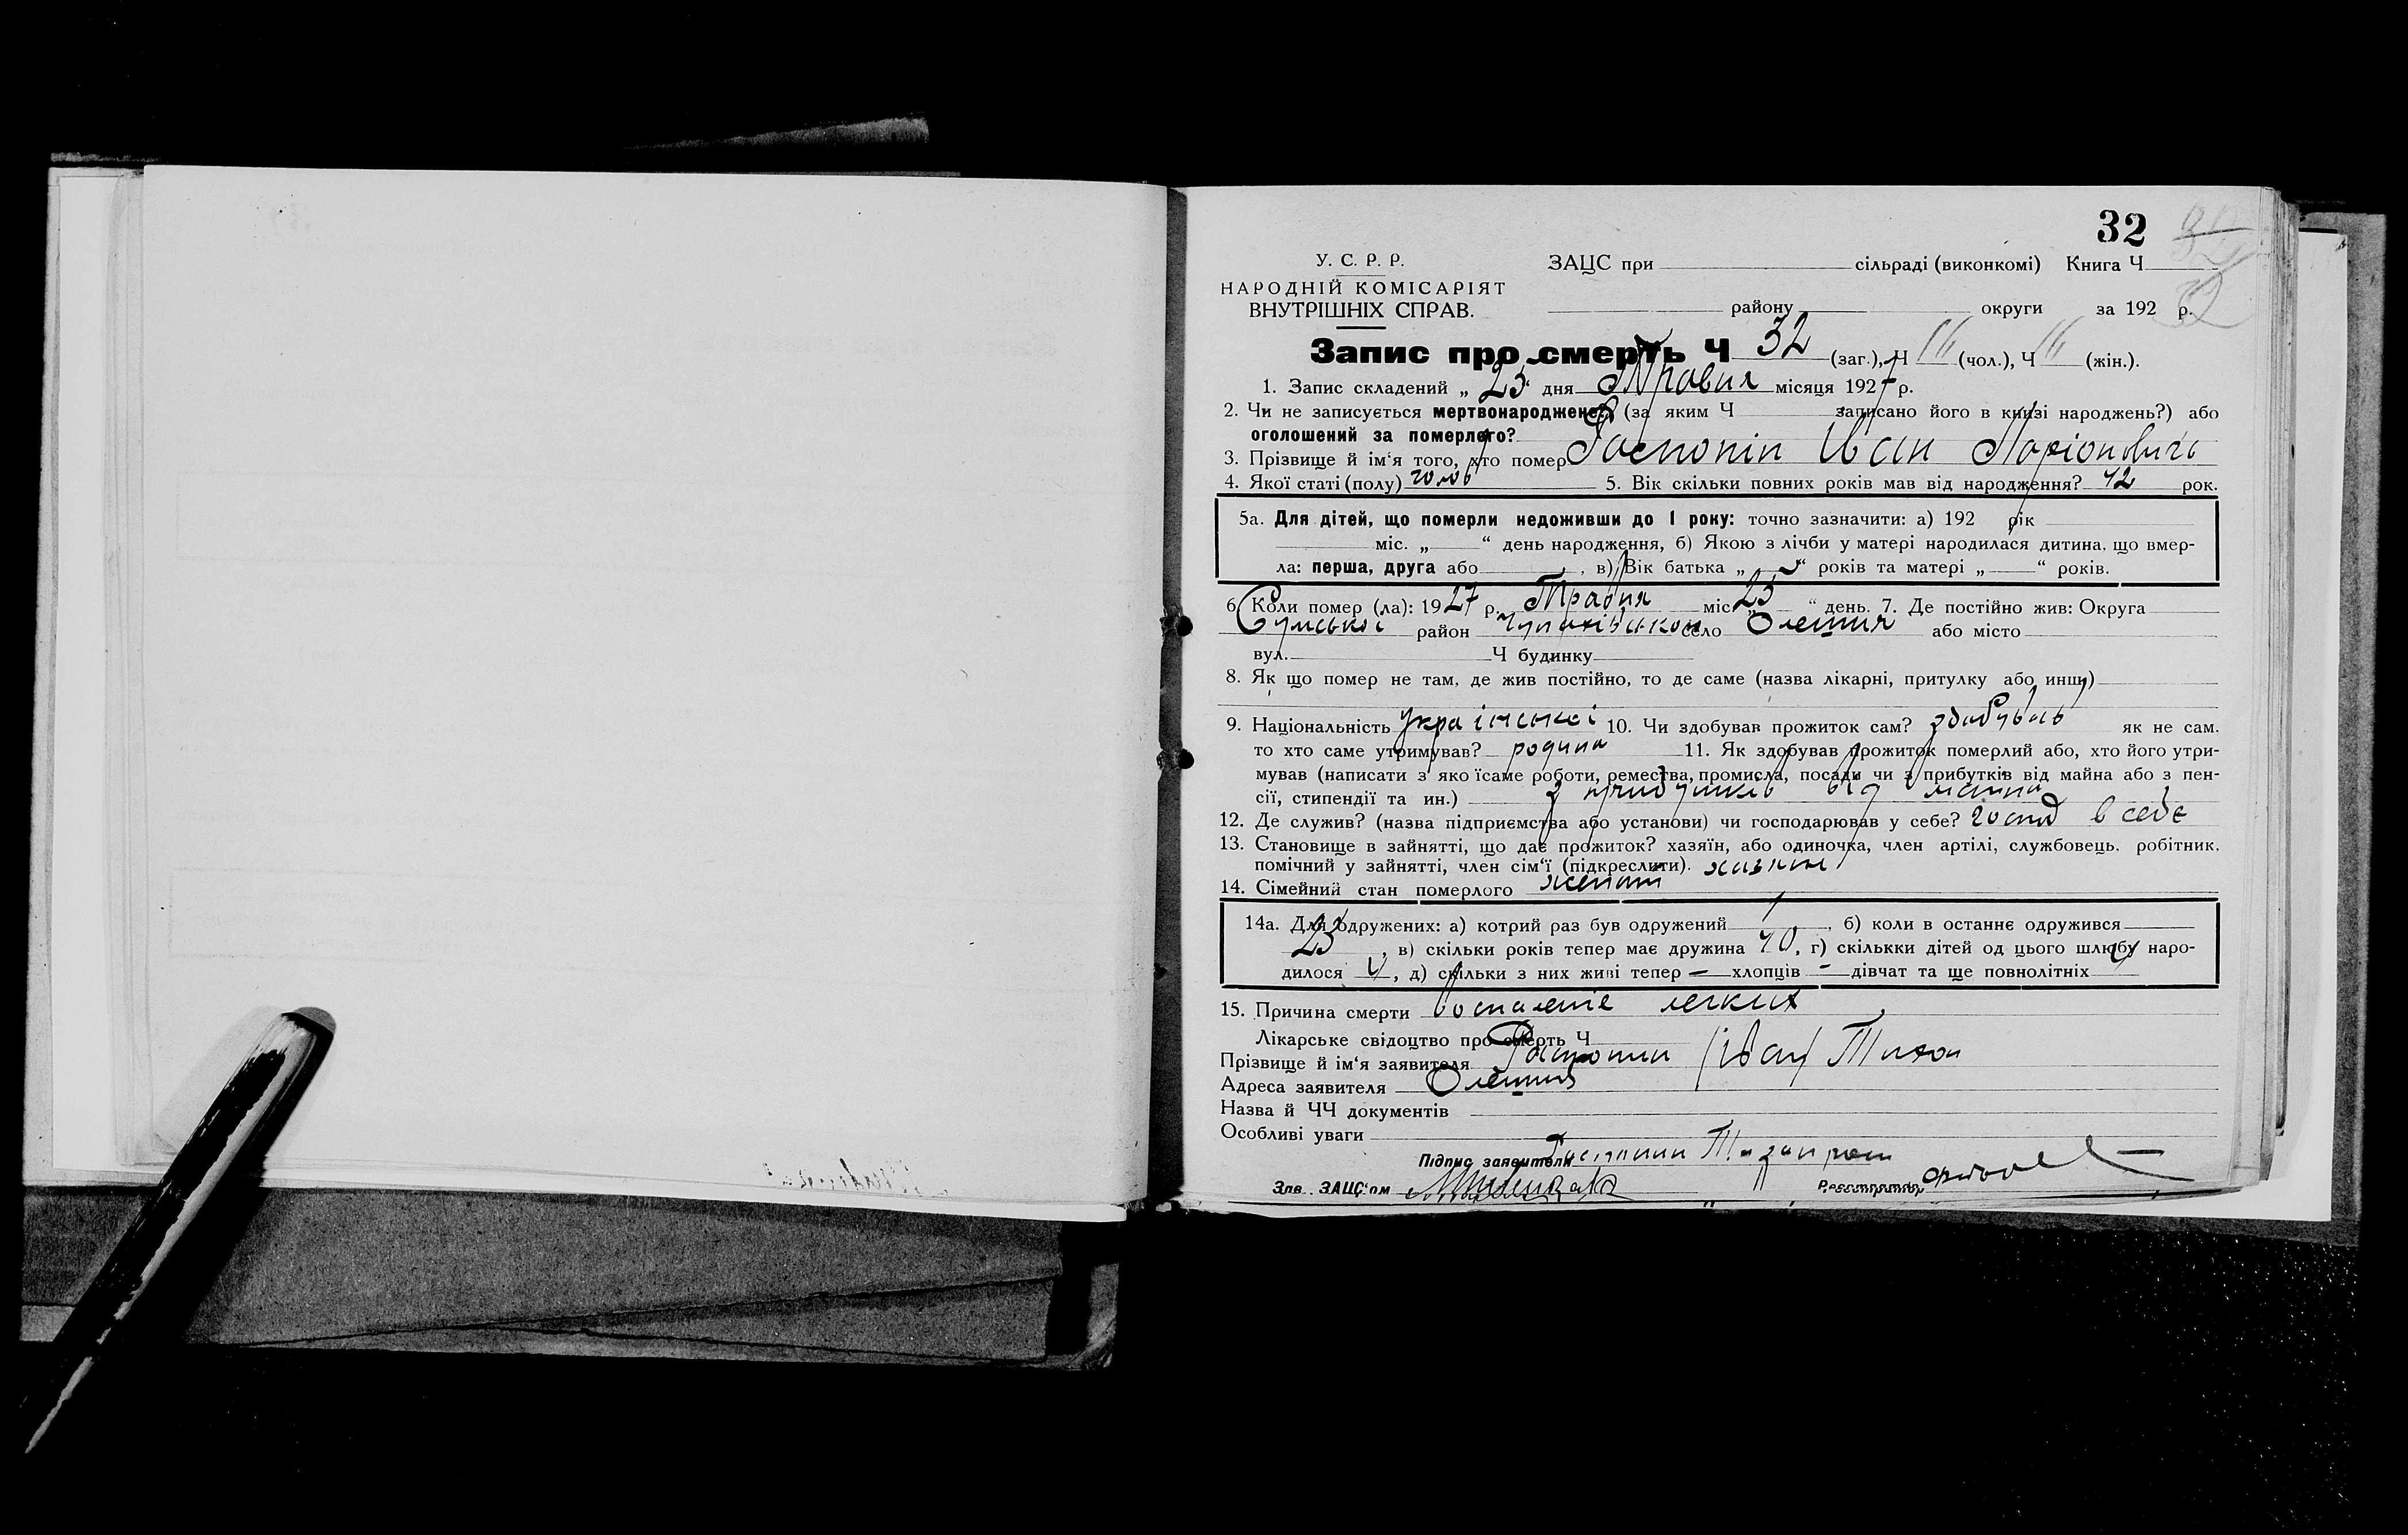 32
У. С. Р. Р.
ЗАЦС при сільраді (виконкомі) Книга Ч
НАРОДНІЙ КОМІСАРІЯТ
ВНУТРІШНІХ СПРАВ.
району округи за 192 р.
32
Запис про смерть Ч 32 (заг.), Ч 16 (чол.), Ч 16 (жін.).
1. Запис складений „ 25 “ дня Травня місяця 1927 р.
2. Чи не записується мертвонароджене? (за яким Ч записано його в книзі народжень?) або
оголошений за померлого?
3. Прізвище й ім‘я того, хто помер Распопін Іван Ларіонович
4. Якої статі (полу) чолов 5. Вік скільки повних років мав від народження? 42 рок.
5а. Для дітей, що померли недоживши до 1 року: точно зазначити: а) 192 рік
міс. „ “ день народження, б) Якою з лічби у матері народилася дитина, що вмер-
ла: перша, друга або , в) Вік батька „ “ років та матері „ “ років.
6. Коли помер (ла): 1927 р. Травня міс „ 25 “ день. 7. Де постійно жив: Округа
Сумської район Чупахівськои село Олешня або місто
вул. Ч будинку
8. Як що помер не там, де жив постійно, то де саме (назва лікарні, притулку або инш.)
9. Національність Українськоі 10. Чи здобував прожиток сам? здобував як не сам.
то хто саме утримував? родина 11. Як здобував прожиток померлий або, хто його утри-
мував (написати з яко їсаме роботи, ремества, промисла, посади чи з прибутків від майна або з пен-
сії, стипендії та ин.) з прибутків від маина
12. Де служив? (назва підприємства або установи) чи господарював у себе? госпд в себе
13. Становище в зайнятті, що дає прожиток? хазяїн, або одиночка, член артілі, службовець, робітник.
помічний у зайнятті, член сім‘ї (підкреслити). хазяин
14. Сімейний стан померлого женат
14а. Для одружених: а) котрий раз був одружений 1, б) коли в останнє одружився
23, в) скільки років тепер має дружина 40, г) скількки дітей од цього шлюбу наро-
дилося , д) скільки з них живі тепер — хлопців — дівчат та ще повнолітніх
15. Причина смерти воспаленіе легких
Лікарське свідоцтво про смерть Ч
Прізвище й ім‘я заявителя Распопин (іван) Тихон
Адреса заявителя Олешня
Назва й ЧЧ документів
Особливі уваги
Підпис заявителя Распопин
Зав. ЗАЦС‘ом Реєстратор